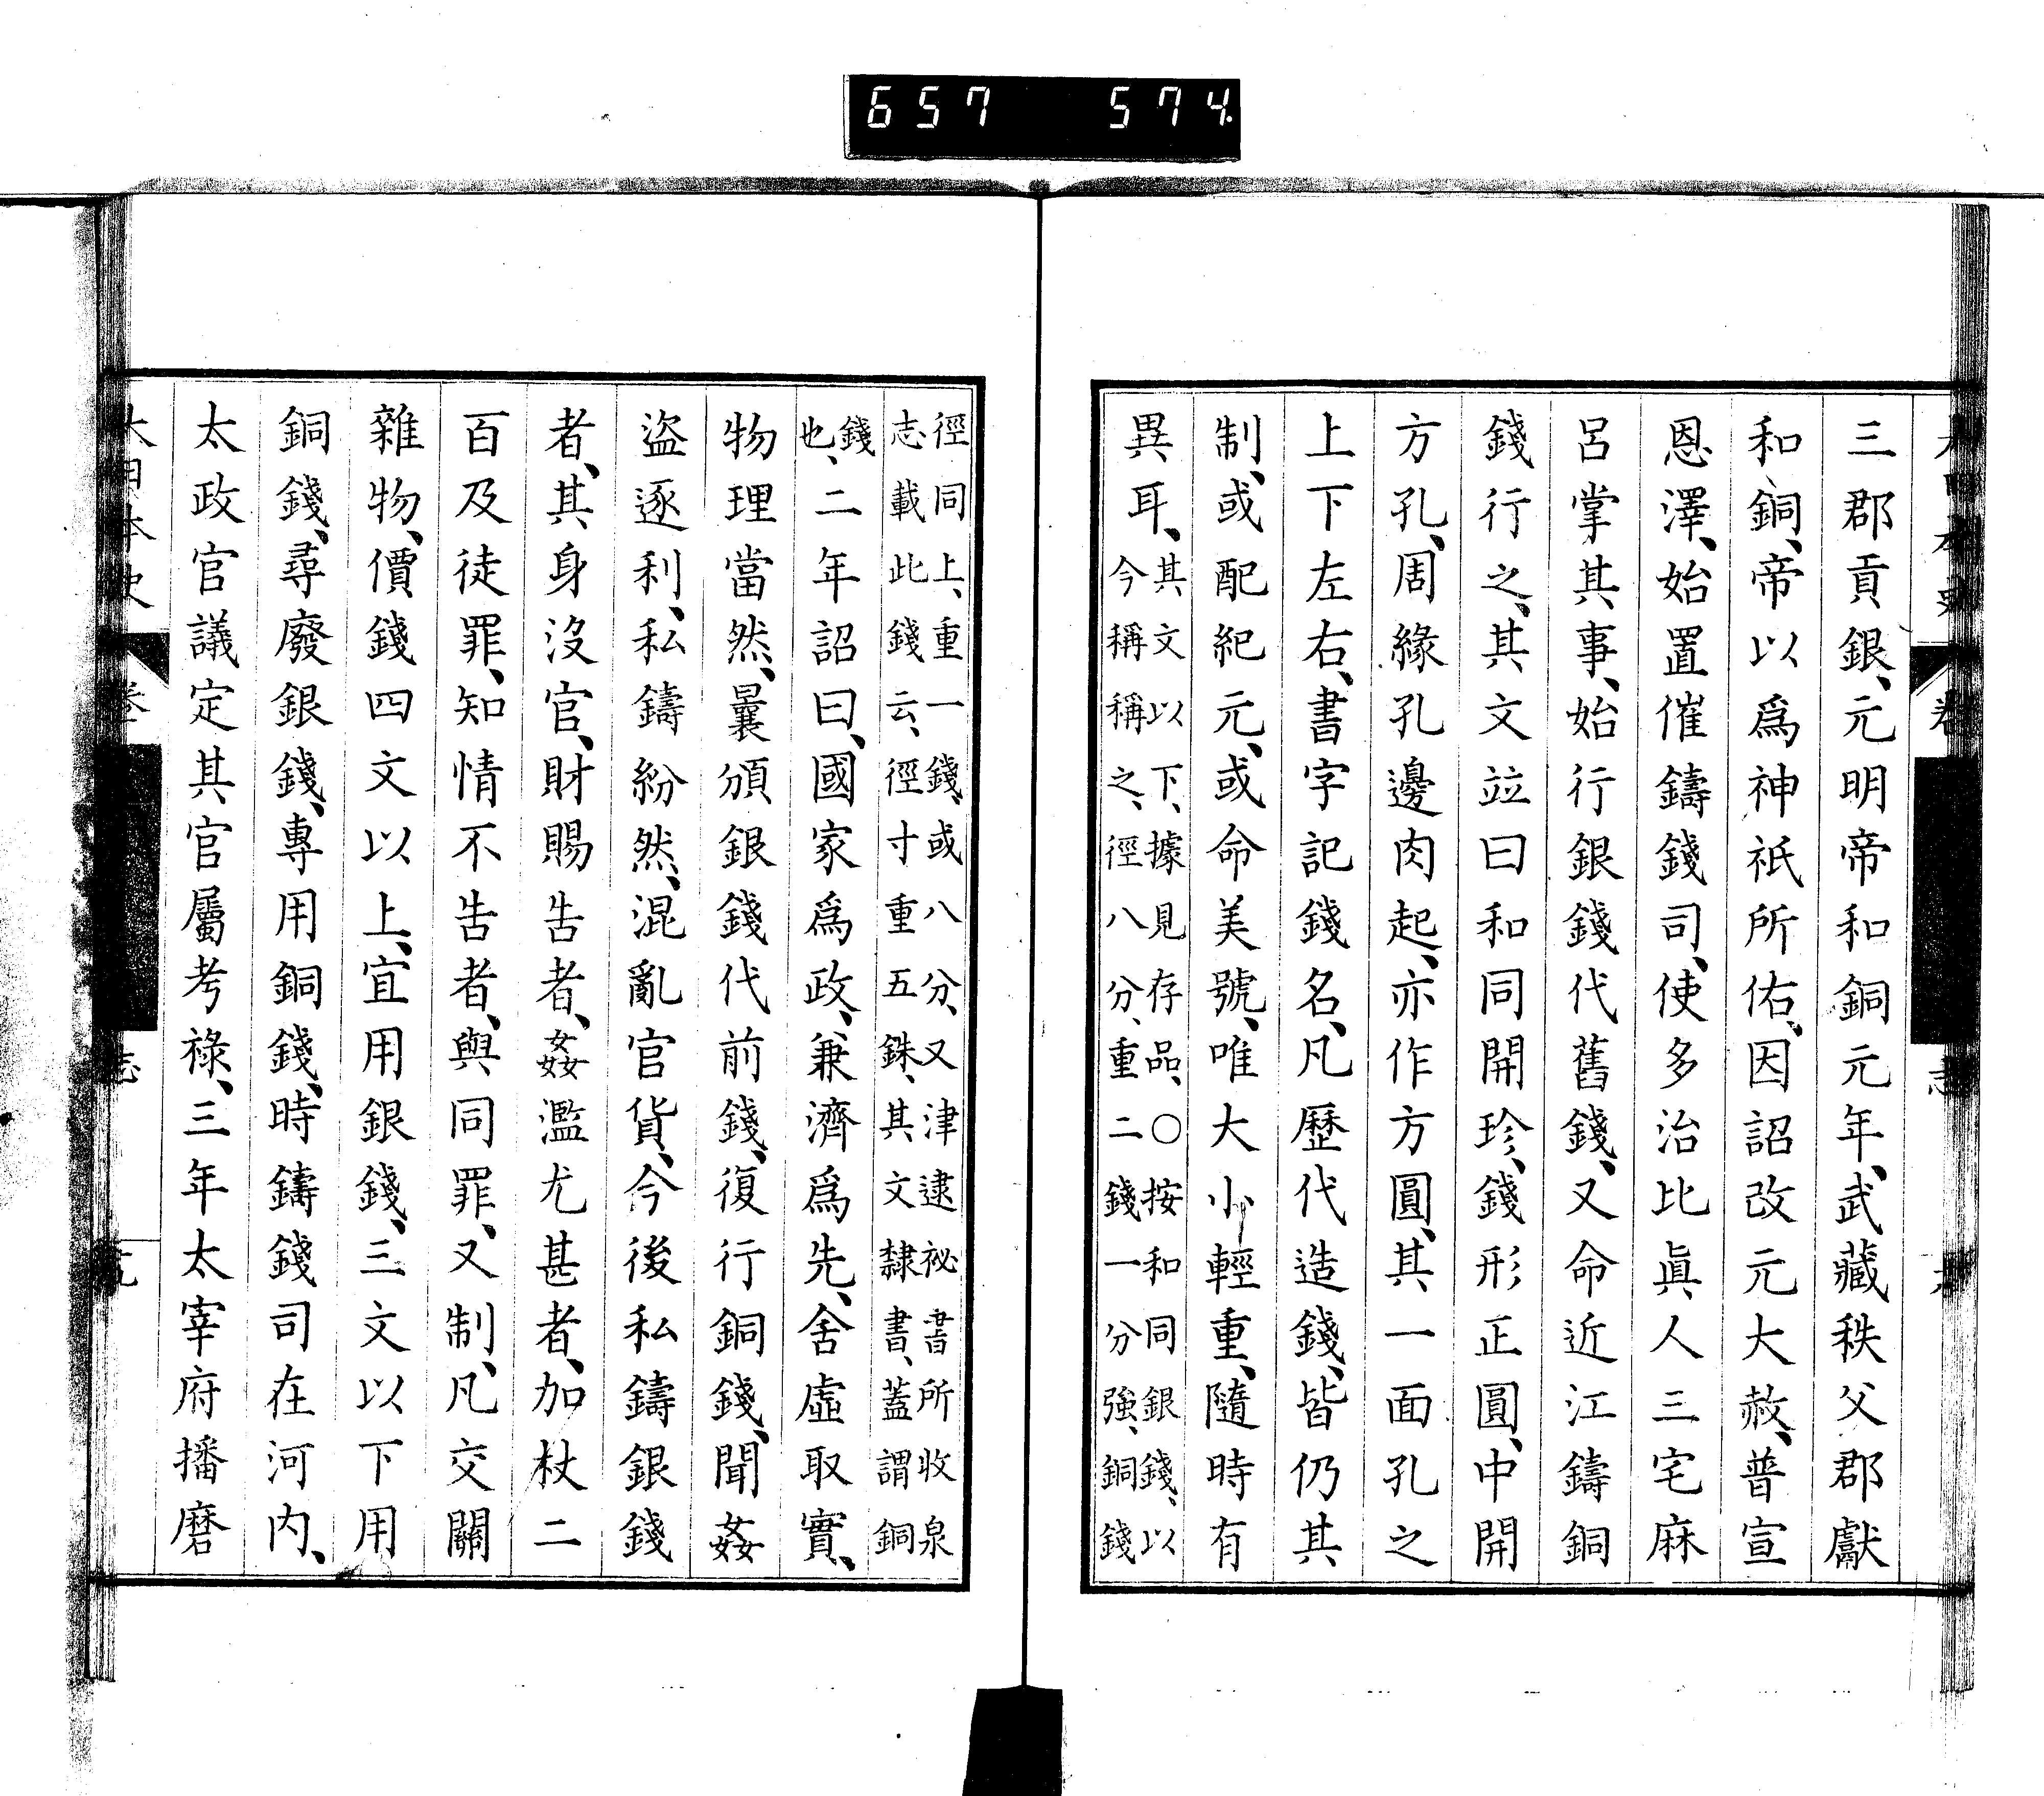 657 574
三郡貢銀、元明帝和銅元年、武藏秩父郡獻
和銅、帝以爲神祇所佑、因詔改元大赦、普宣
恩澤、始置催鑄錢司、使多治比眞人三宅麻
呂掌其事、始行銀錢代舊錢、又命近江鑄銅
錢行之、其文竝曰和同開珍、錢形正圓、中開
方孔、周緣孔邊肉起、亦作方圓、其一面孔之
上下左右、書字記錢名、凡歷代造錢、皆仍其
制、或配紀元、或命美號、唯大小輕重、隨時有
異耳、
其文以下、據見存品、○按和同銀錢、以
今稱稱之、徑八分、重二錢一分強、銅錢
徑同上、重一錢、或八分、又津逮祕書所收泉
志載此錢云、徑寸重五銖、其文隸書、蓋謂銅
錢
也、
二年詔曰、國家爲政、兼濟爲先、舍虛取實、
物理當然、曩頒銀錢代前錢、復行銅錢、聞姦
盜逐利、私鑄紛然、混亂官貨、今後私鑄銀錢
者、其身沒官、財賜告者、姦濫尤甚者、加杖二
百及徒罪、知情不告者、與同罪、又制、凡交關
雜物、價錢四文以上、宜用銀錢、三文以下用
銅錢、尋廢銀錢、專用銅錢、時鑄錢司在河內、
太政官議定其官屬考祿、三年太宰府播磨
大日本史